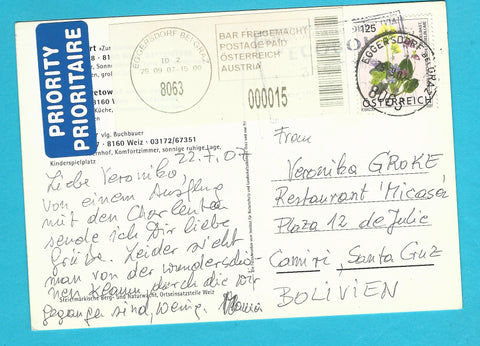 PRIORITY
PRIORITAIRE
EGGERSDORF BEI GRAZ
25 09 07-15 00
8063
BAR FREIGEMACHT
POSTAGE PAID
ÖSTERREICH
AUSTRIA
000015
125
EGGERSDORF BEI GRAZ
8063
ÖSTERREICH
vlg. Buchbauer
8160 Weiz · 03172/67351
Komfortzimmer, sonnige ruhige Lage,
Kinderspielplatz
22.7.07
Liebe Veronika,
von einem Ausflug
mit den
sende ich Dir liebe
Grüße. Leider sieht
man von der wunderschö-
nen Klamm, durch die wir
gegangen sind, wenig.
Steiermärkische Berg- und Naturwacht, Ortseinsatzstelle Weiz
Veronika GROKE
Restaurant 'Micasa'
Plaza 12 de Julio
Camiri, Santa Cruz
BOLIVIEN